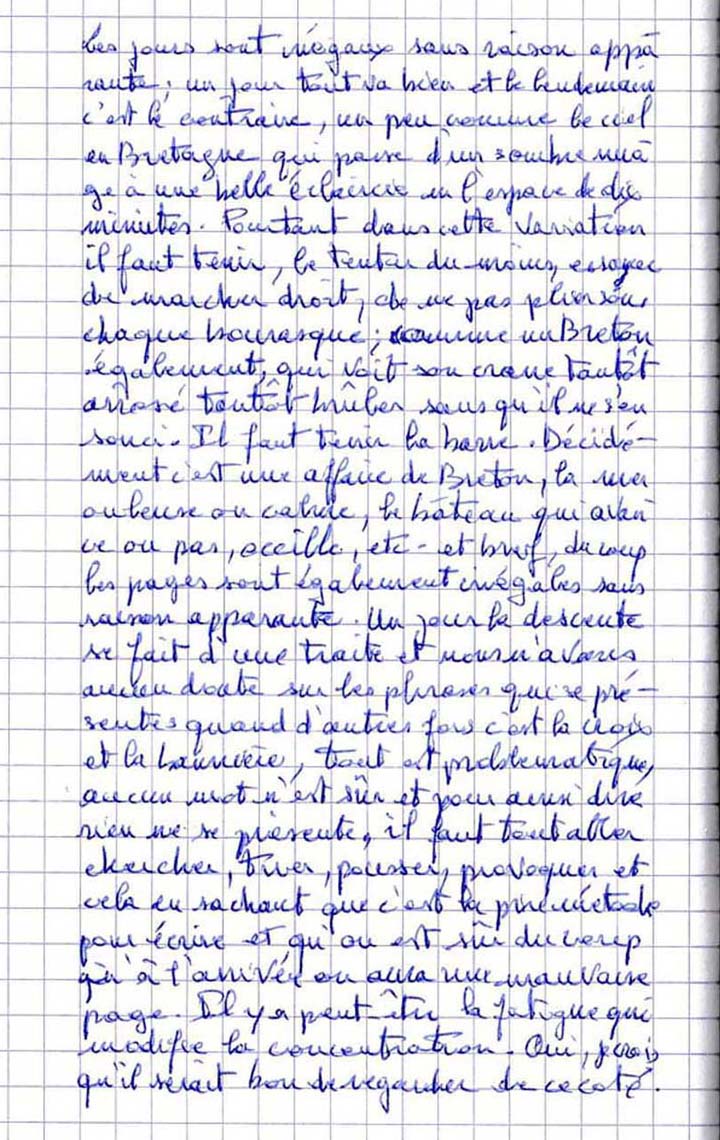 Les jours sont inégaux sans raison appa
rante ; un jour tout va bien et le lendemain
c'est le contraire, un peu comme le ciel
en Bretagne qui passe d'un sombre nua
ge à une belle éclaircie en l'espace de dix
minutes. Pourtant dans cette variation
il faut tenir, le tenter du moins, essayer
de marcher droit, de ne pas plier sous
chaque bourasque ; comme un Breton
également, qui voit son crane tantôt
arrosé tantôt brûler sans qu'il ne s'en
souci. Il faut tenir la barre. Décidé-
ment c'est une affaire de Breton, la mer
ou calme, le bâteau qui avan
ce ou pas, occille, etc - et bref, du coup
les pages sont également inégales sans
raison apparante. Un jour la descente
se fait d'une traite et nous n'avons
aucun doute sur les phrases qui se pré-
sentes quand d'autres fois c'est la croix
et la bannière, tout est problematique,
aucun mot n'est sûr et pour ainsi dire
rien ne se présente, il faut tout aller
chercher, tirer, pousser, provoquer et
cela en sachant que c'est la pire métode
pour écrire et qu'on est sûr du coup
qu'à l'arrivée on aura une mauvaise
page. Il y a peut-être la fatigue qui
modifie la concentration. Oui, je crois
qu'il serait bon de regarder de ce coté.